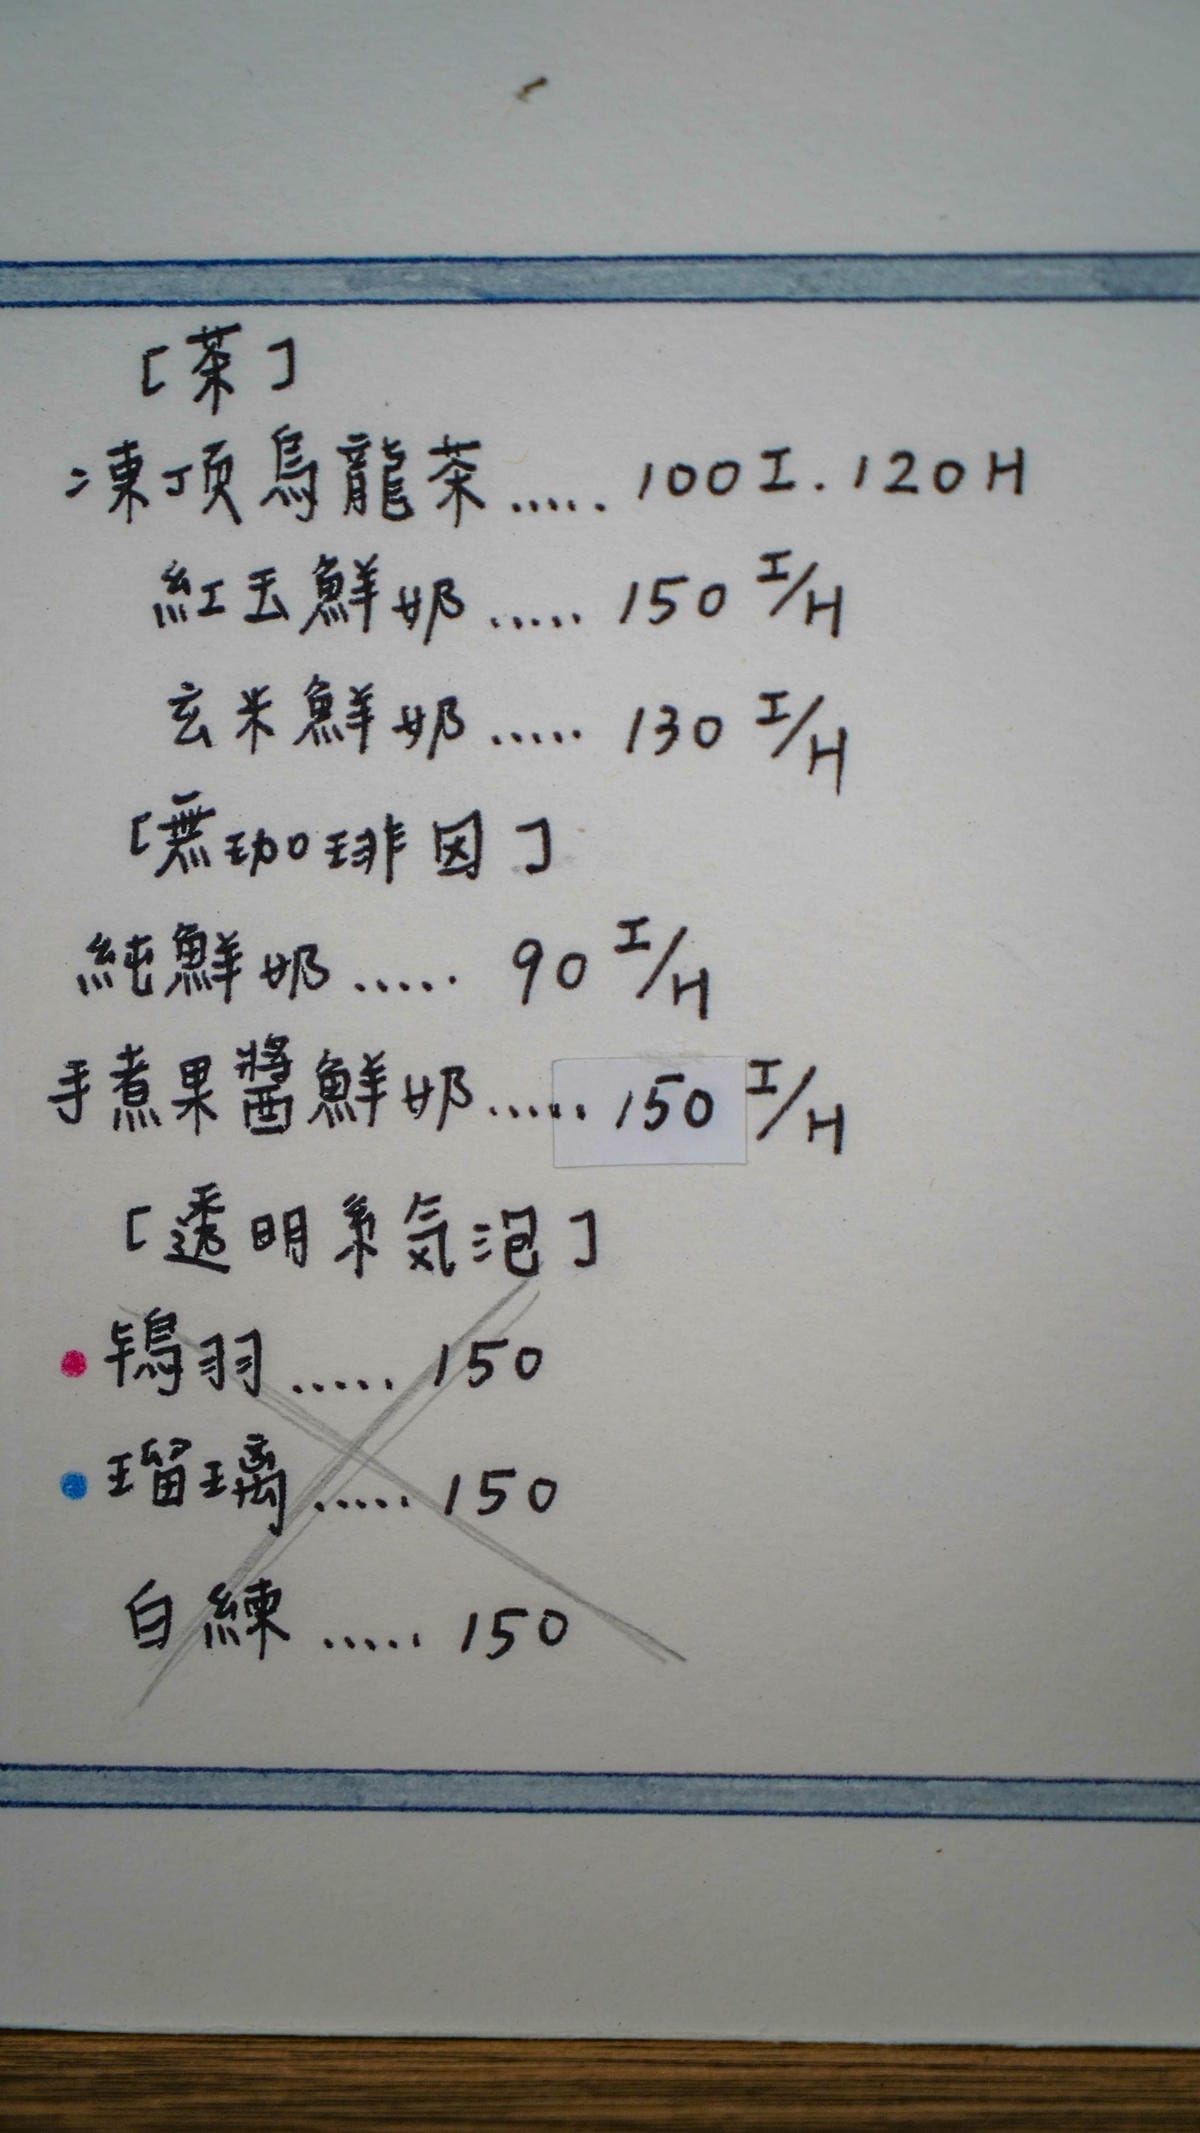 [茶]
凍頂烏龍茶..... 100I. 120H
紅玉鮮奶..... 150 I/H
玄米鮮奶..... 130 I/H
[無珈琲因]
純鮮奶..... 90 I/H
手煮果醬鮮奶..... 150 I/H
[透明系気泡]
鴇羽..... 150
瑠璃..... 150
白練..... 150